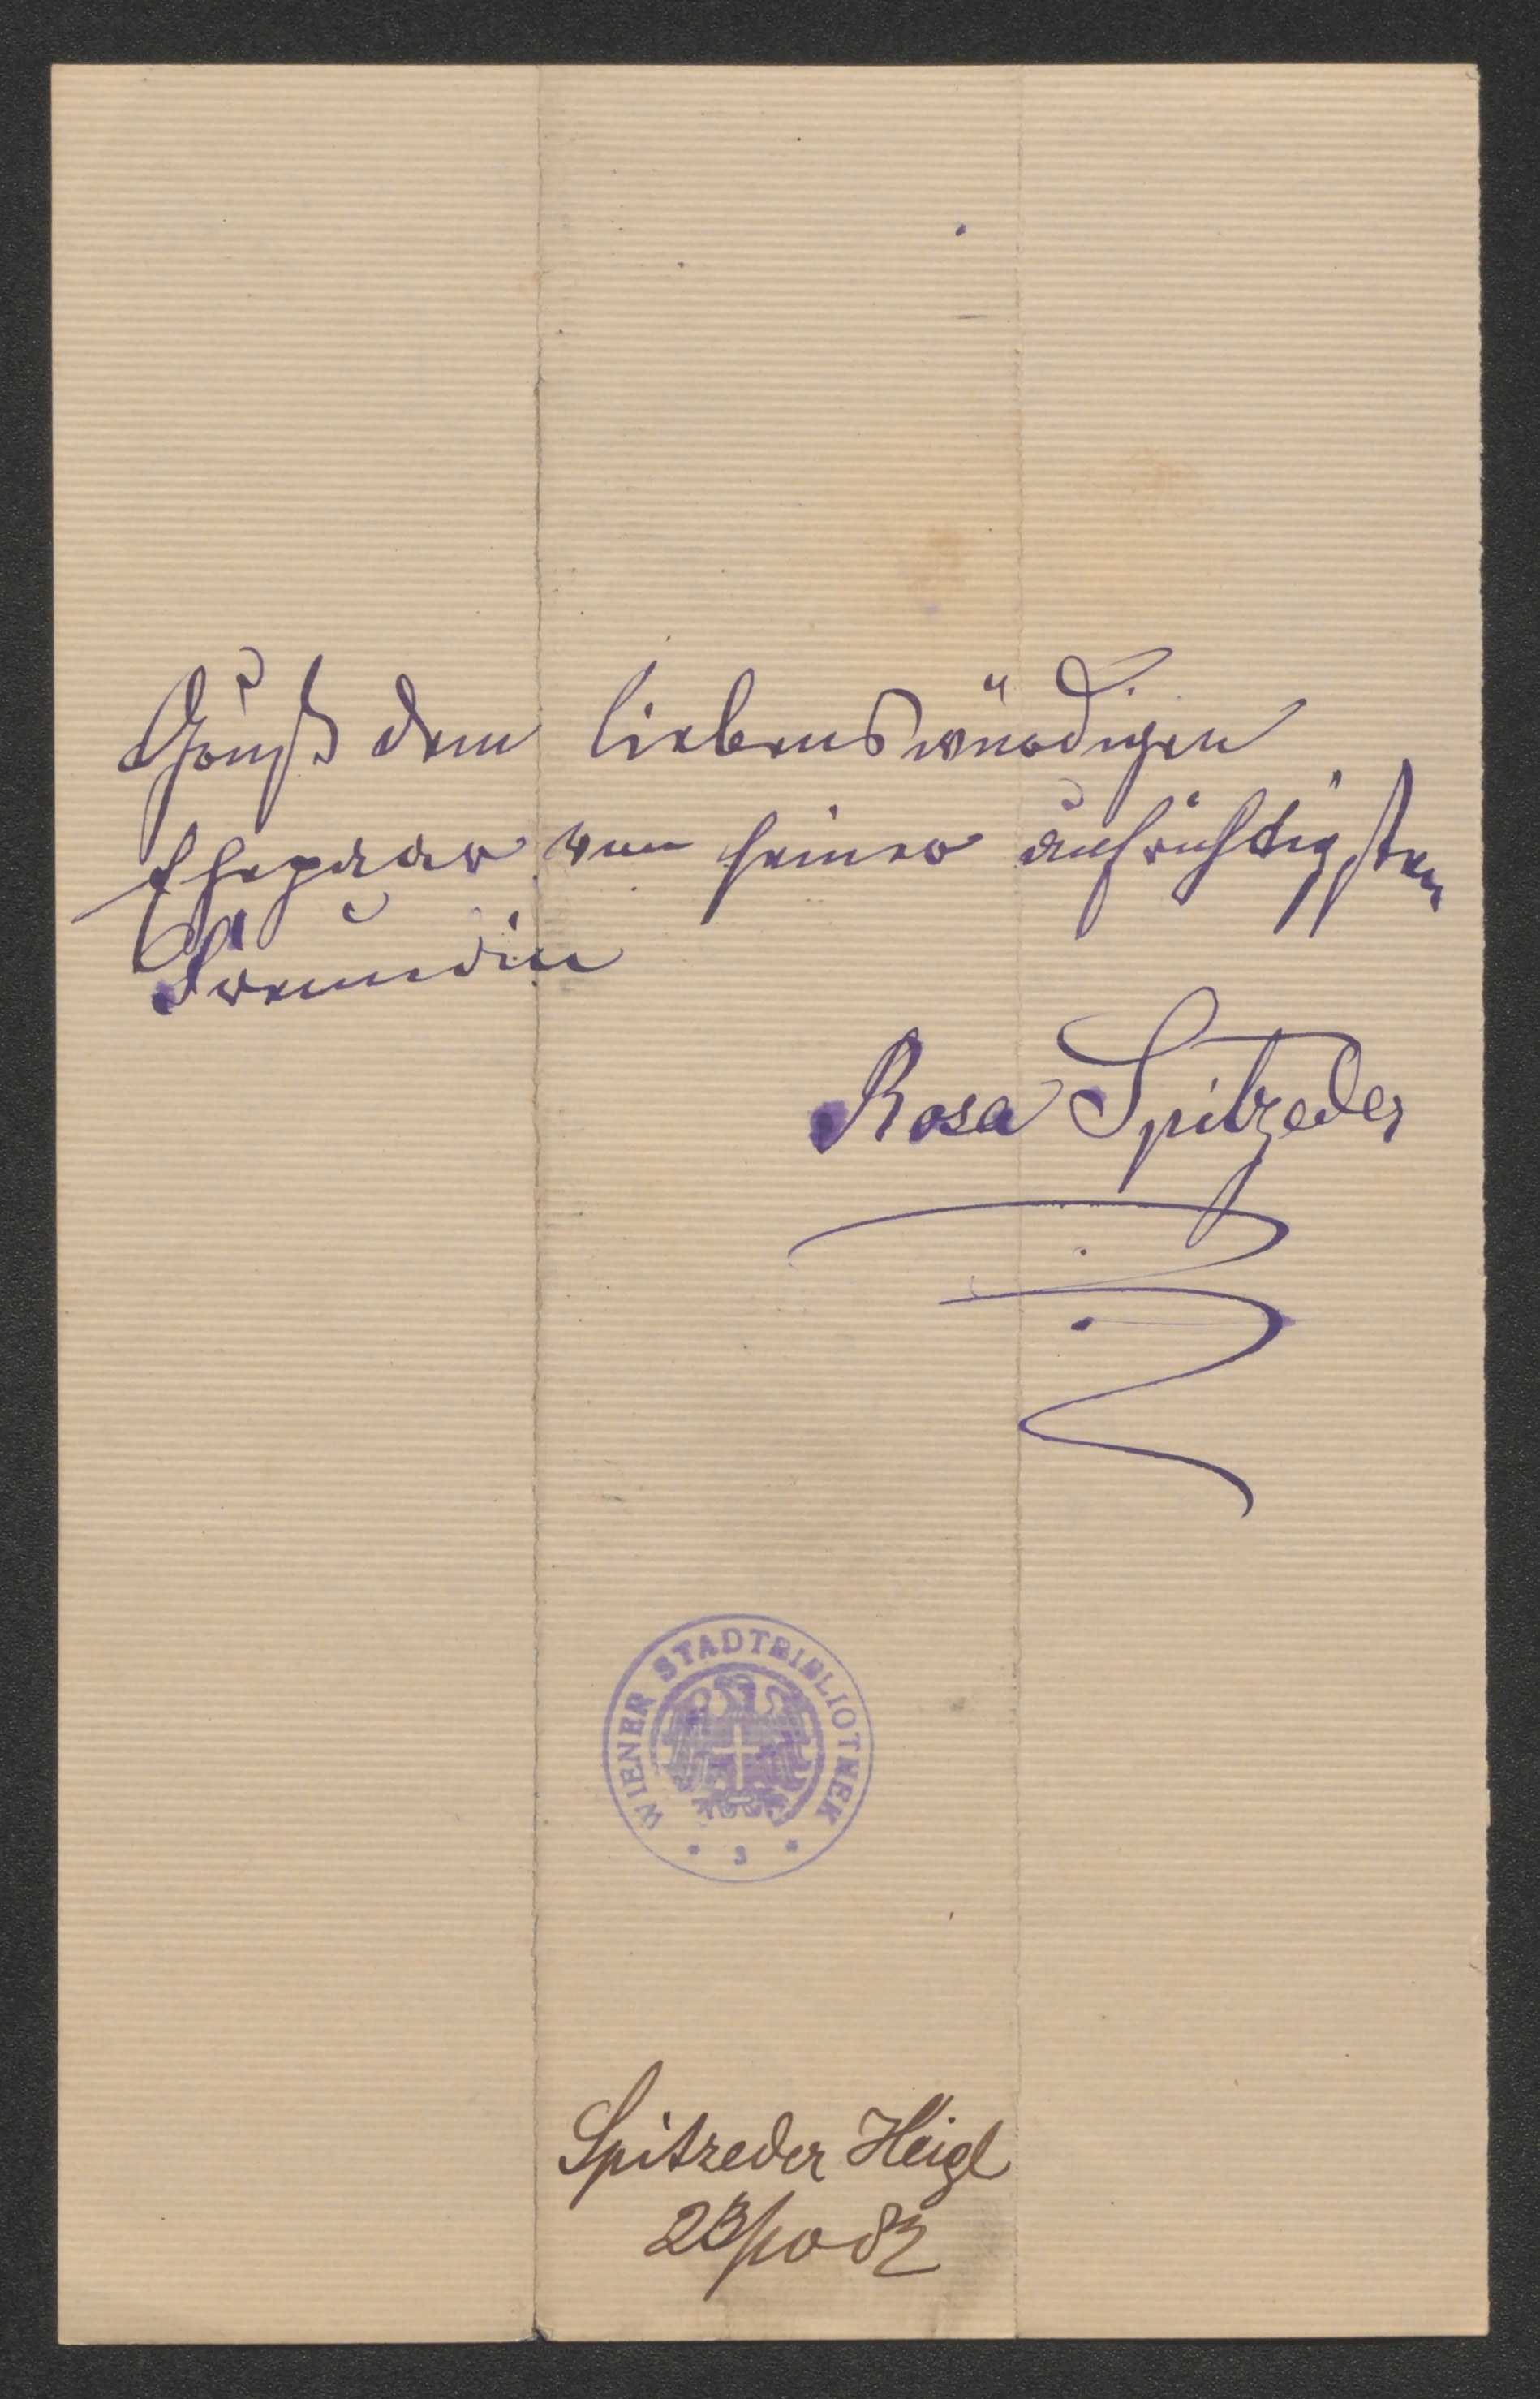 Gruß dem liebenswürdigen
Ehepaar von seiner aufrichtigsten
Freundin
Rosa Spitzeder
WIENER STADTBIBLIOTHEK
* 3 *
Spitzeder Heigl
23/10 82